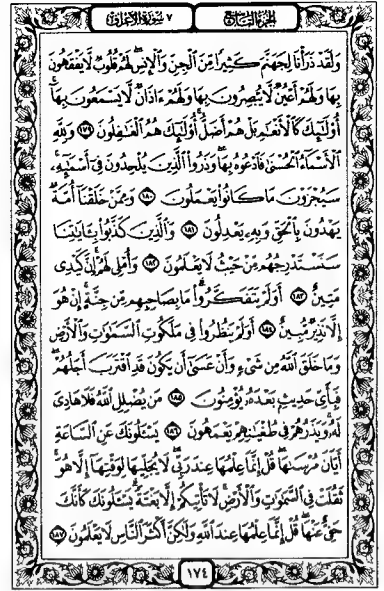 ٧ سورة الأعراف الجزء التاسع
وَلَقَدْ ذَرَأْنَا لِجَهَنَّمَ كَثِيرًا مِّنَ الْجِنِّ وَالْإِنسِ لَهُمْ قُلُوبٌ لَّا يَفْقَهُونَ
بِهَا وَلَهُمْ أَعْيُنٌ لَّا يُبْصِرُونَ بِهَا وَلَهُمْ ءَاذَانٌ لَّا يَسْمَعُونَ بِهَا
أُوْلَٰٓئِكَ كَالْأَنْعَٰمِ بَلْ هُمْ أَضَلُّ أُوْلَٰٓئِكَ هُمُ الْغَٰفِلُونَ ١٧٩ وَلِلَّهِ
الْأَسْمَآءُ الْحُسْنَىٰ فَادْعُوهُ بِهَا وَذَرُوا الَّذِينَ يُلْحِدُونَ فِىٓ أَسْمَٰٓئِهِۦ
سَيُجْزَوْنَ مَا كَانُوا يَعْمَلُونَ ١٨٠ وَمِمَّنْ خَلَقْنَآ أُمَّةٌ
يَهْدُونَ بِالْحَقِّ وَبِهِۦ يَعْدِلُونَ ١٨١ وَالَّذِينَ كَذَّبُوا بِـَٔايَٰتِنَا
سَنَسْتَدْرِجُهُم مِّنْ حَيْثُ لَا يَعْلَمُونَ ١٨٢ وَأُمْلِى لَهُمْ إِنَّ كَيْدِى
مَتِينٌ ١٨٣ أَوَلَمْ يَتَفَكَّرُوا مَا بِصَاحِبِهِم مِّن جِنَّةٍ إِنْ هُوَ
إِلَّا نَذِيرٌ مُّبِينٌ ١٨٤ أَوَلَمْ يَنظُرُوا فِى مَلَكُوتِ السَّمَٰوَٰتِ وَالْأَرْضِ
وَمَا خَلَقَ اللَّهُ مِن شَىْءٍ وَأَنْ عَسَىٰٓ أَن يَكُونَ قَدِ اقْتَرَبَ أَجَلُهُمْ
فَبِأَىِّ حَدِيثٍۭ بَعْدَهُۥ يُؤْمِنُونَ ١٨٥ مَن يُضْلِلِ اللَّهُ فَلَا هَادِىَ
لَهُۥ وَيَذَرُهُمْ فِى طُغْيَٰنِهِمْ يَعْمَهُونَ ١٨٦ يَسْـَٔلُونَكَ عَنِ السَّاعَةِ
أَيَّانَ مُرْسَىٰهَا قُلْ إِنَّمَا عِلْمُهَا عِندَ رَبِّى لَا يُجَلِّيهَا لِوَقْتِهَآ إِلَّا هُوَ
ثَقُلَتْ فِى السَّمَٰوَٰتِ وَالْأَرْضِ لَا تَأْتِيكُمْ إِلَّا بَغْتَةً يَسْـَٔلُونَكَ كَأَنَّكَ
حَفِىٌّ عَنْهَا قُلْ إِنَّمَا عِلْمُهَا عِندَ اللَّهِ وَلَٰكِنَّ أَكْثَرَ النَّاسِ لَا يَعْلَمُونَ ١٨٧
١٧٤